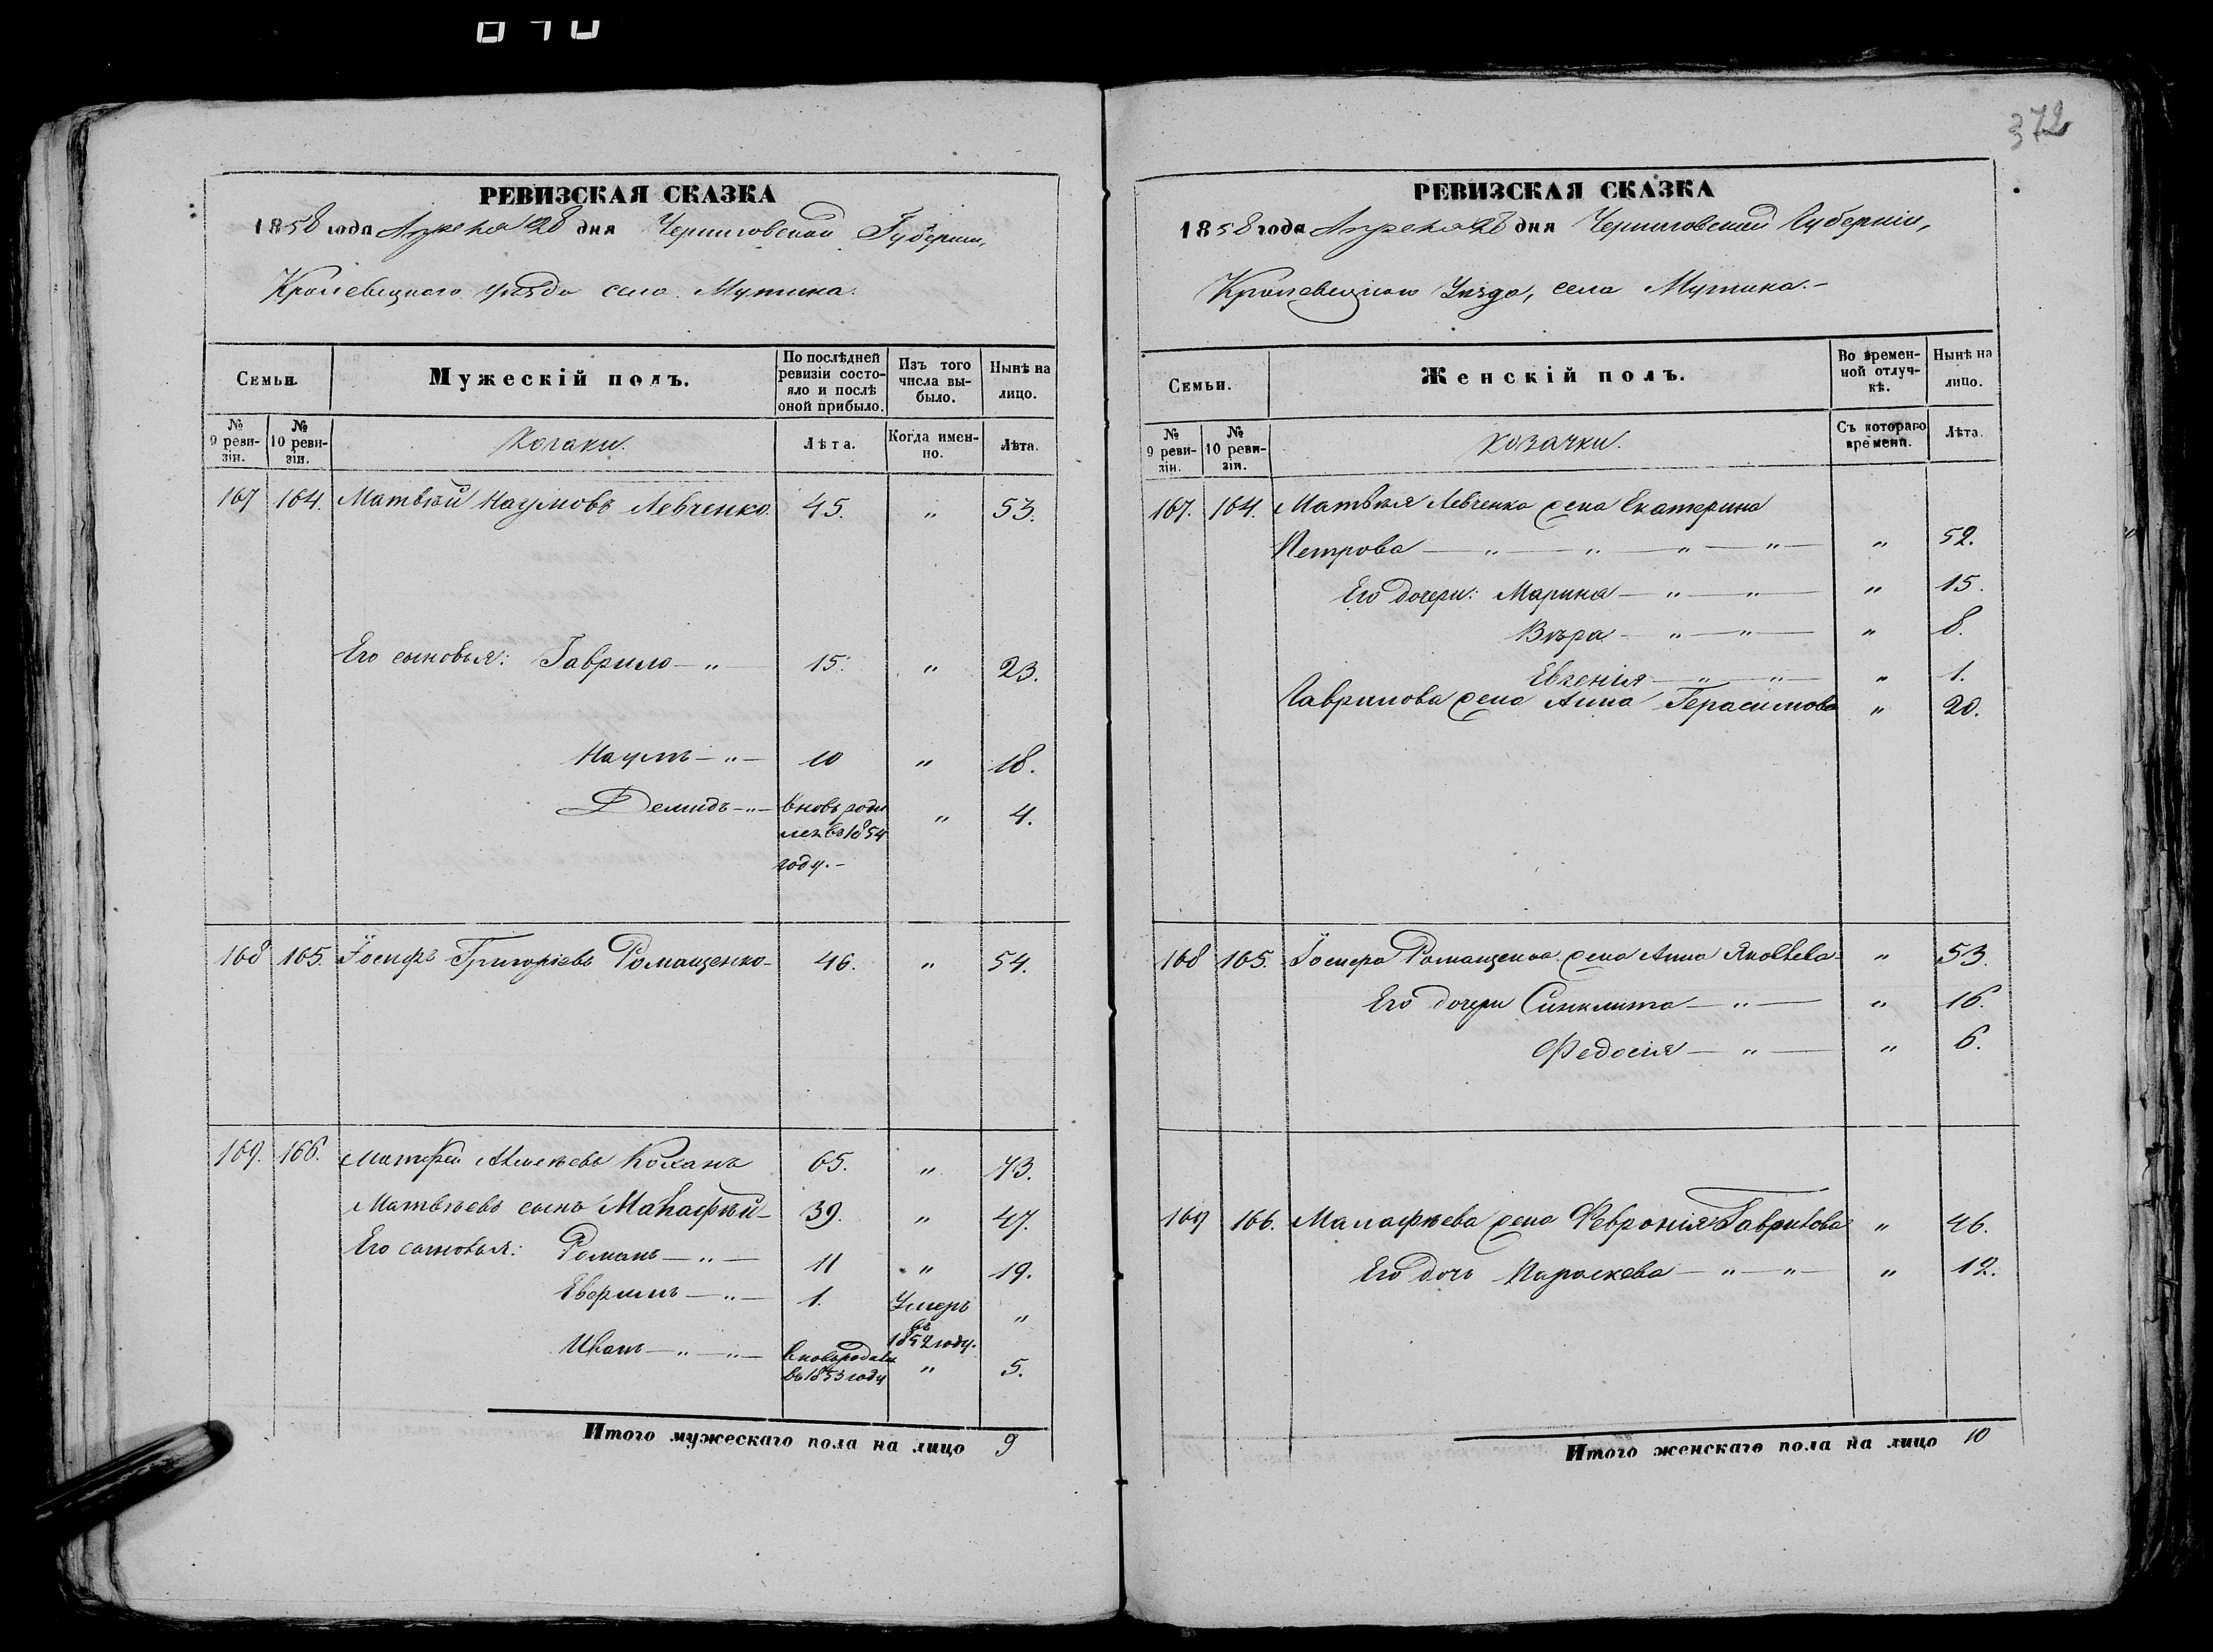 372
РЕВИЗСКАЯ СКАЗКА
1858 года Апреля 28 дня Черниговской Губернии,
Кролевецкого уѣзда села Мутина.
Семьи. Мужескій полъ. По послѣдней ревизіи состояло и послѣ оной прибыло. Изъ того числа выбыло. Нынѣ на лицо.
№ 9 ревизіи. № 10 ревизіи. Козаки. Лѣта. Когда именно. Лѣта.
167 164. Матвѣй Наумовъ Левченко. 45. „ 53.
Его сыновья: Гаврило — „ — 15. „ 23.
Наумъ — „ — 10 „ 18.
Демидъ — „ — вновь роди
лся въ 1854 „ 4.
году. —
168 165. Іосифъ Григоріевъ Романценко — 46. „ 54.
169. 166. Матфей Алексѣевъ Коханъ 65. „ 73.
Матвѣевъ сынъ Малафѣй — 39. „ 47.
Его сыновья: Романъ — „ — 11 „ 19.
Евфимъ — „ — 1. Умеръ въ 1852 году. „
Иванъ — „ — „ — вновь родился
въ 1853 году „ 5.
Итого мужескаго пола на лицо 9
РЕВИЗСКАЯ СКАЗКА
1858 года Апреля 28 дня Черниговской Губерніи,
Кролевецкого Уѣзда, села Мутина. —
Семьи. Женскій полъ. Во временной отлучкѣ. Нынѣ на лицо.
№ 9 ревизіи. № 10 ревизіи. Козачки. Съ котораго времени. Лѣта.
167. 164. Матвѣя Левченка жена Екатерина
Петрова — „ — „ — „ — „ — „ 52.
Его дочери: Марина — „ — „ — „ 15.
Вѣра — „ — „ — „ 8.
Евгенія — „ — „ — „ 1.
Гаврилова жена Анна Герасимова „ 20.
168 165. Іосифа Романценка жена Анна Яковлева „ 53.
Его дочери Синклита — „ — „ 16.
Федосія — „ — „ 6.
169 166. Малафѣева жена Февронія Гаврилова „ 46.
Его дочь Параскева — „ — „ — „ 12.
Итого женскаго пола на лицо 10